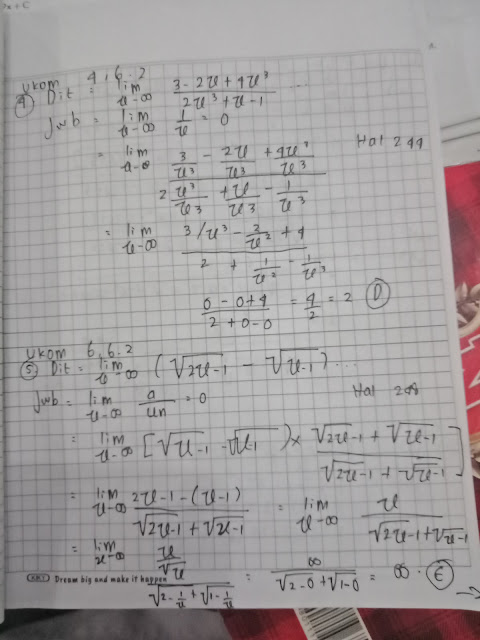 x + C
Ukom 4,6.2
④ Dit = lim u→∞ (3 - 2u + 4u³)/(2u³ + u - 1) ...
Jwb = lim u→∞ 1/u = 0
= lim u→∞ (3/u³ - 2u/u³ + 4u³/u³)/(2 u³/u³ + u/u³ - 1/u³) Hal 244
= lim u→∞ (3/u³ - 2/u² + 4)/(2 + 1/u² - 1/u³)
(0 - 0 + 4)/(2 + 0 - 0) = 4/2 = 2 Ⓓ
Ukom 6,6.2
⑤ Dit = lim u→∞ (√2u-1 - √u-1) ...
Jwb = lim u→∞ a/un = 0 Hal 248
= lim u→∞ [√u-1 - √u1) × (√2u-1 + √u-1)/(√2u-1 + √u-1)]
= lim u→∞ (2u-1-(u-1))/(√2u-1 + √u-1) = lim u→∞ u/(√2u-1 + √u-1)
= lim u→∞ (u/√u)/(√2-1/u + √1-1/u) = ∞/(√2-0 + √1-0) = ∞ · Ⓔ
Dream big and make it happen
→